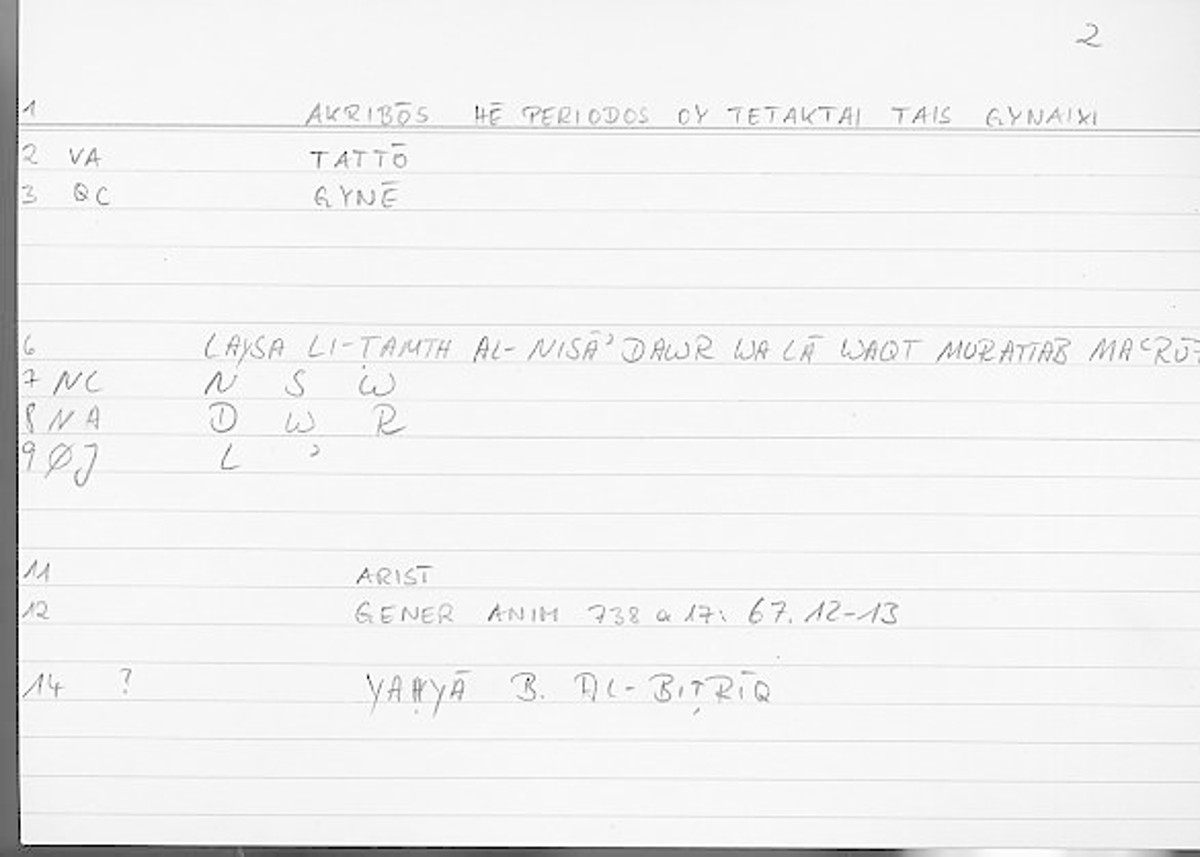 2
1 AKRIBŌS HĒ PERIODOS OY TETAKTAI TAIS GYNAIXI
2 VA TATTŌ
3 QC GYNĒ
6 LAYSA LI-ṬAMTH AL-NISĀʾ DAWR WA LĀ WAQT MURATTAB
7 NC N S W
8 NA D W R
9 ØJ L ʾ
11 ARIST
12 GENER ANIM 738 a 17: 67.12-13
14 ? YAḤYĀ B. AL-BIṬRĪQ